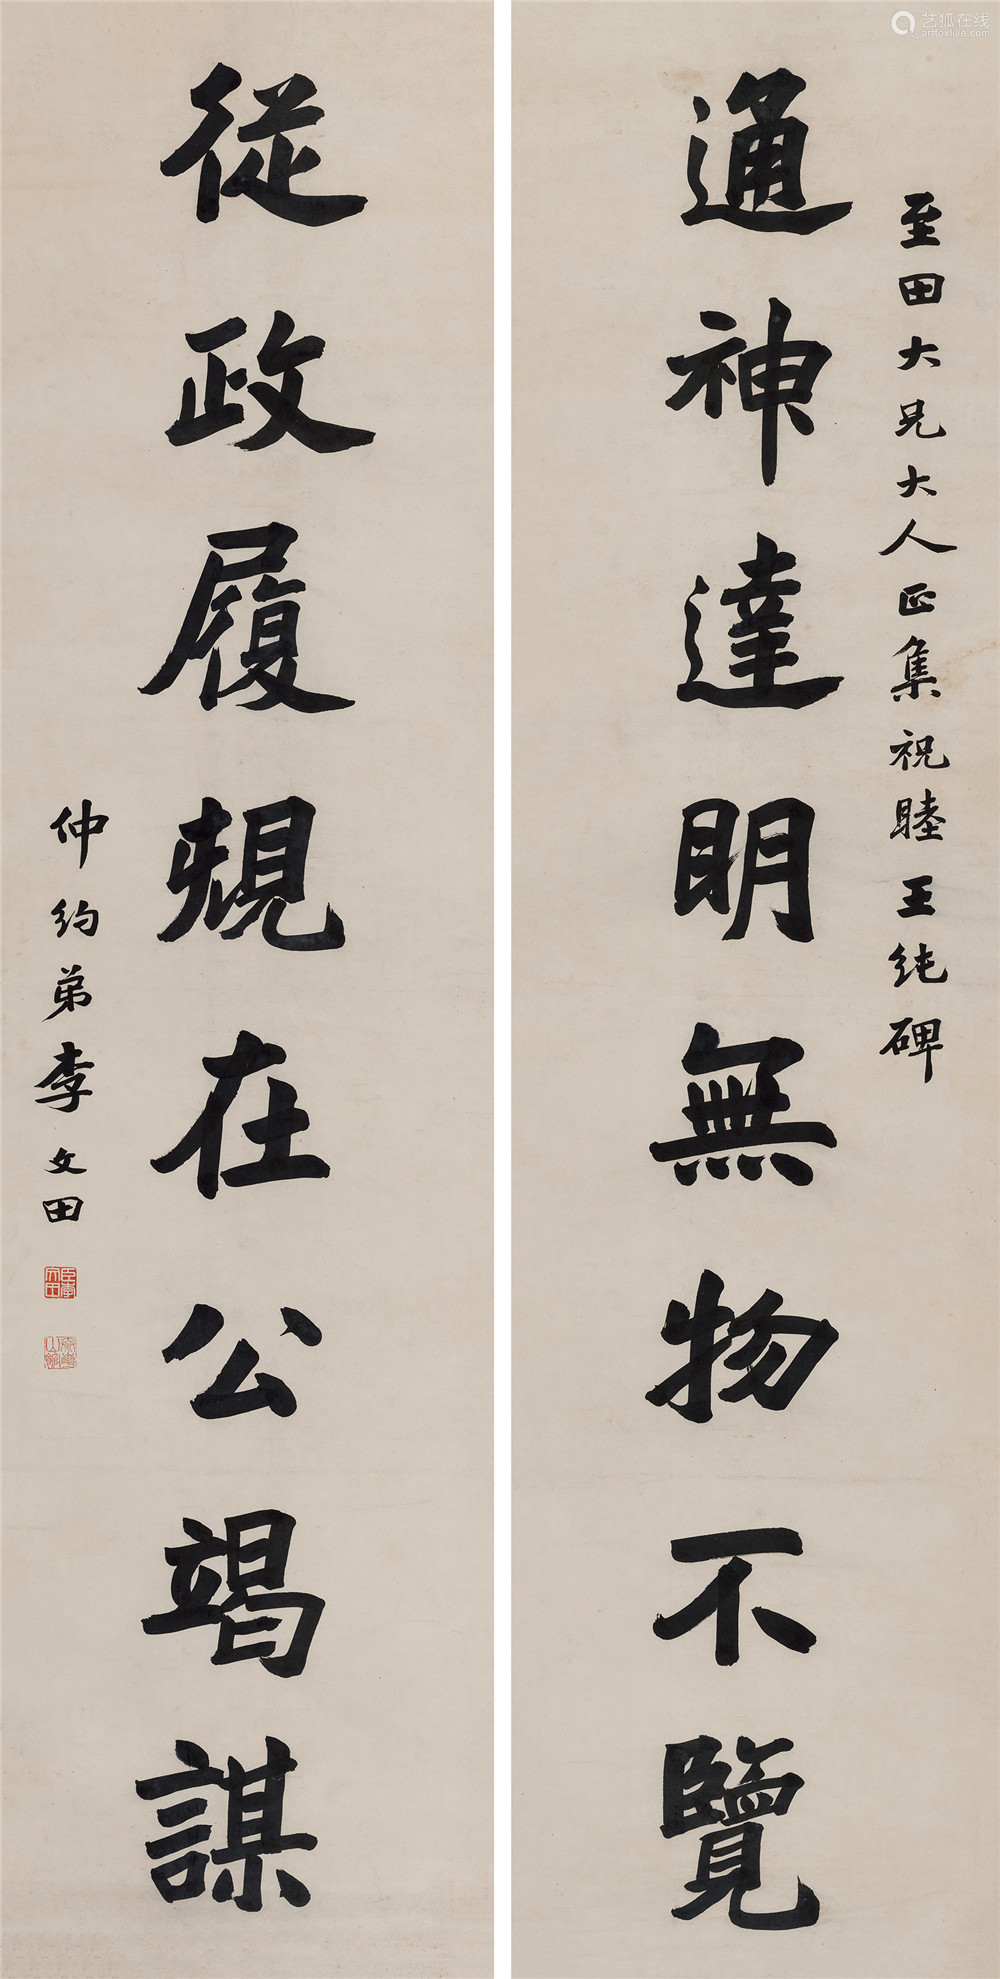 至田大兄大人正集祝睦王纯碑
通神達明無物不覽
從政履規在公竭謀
仲約弟李文田
臣李文田
艺狐在线
artfoxlive.com